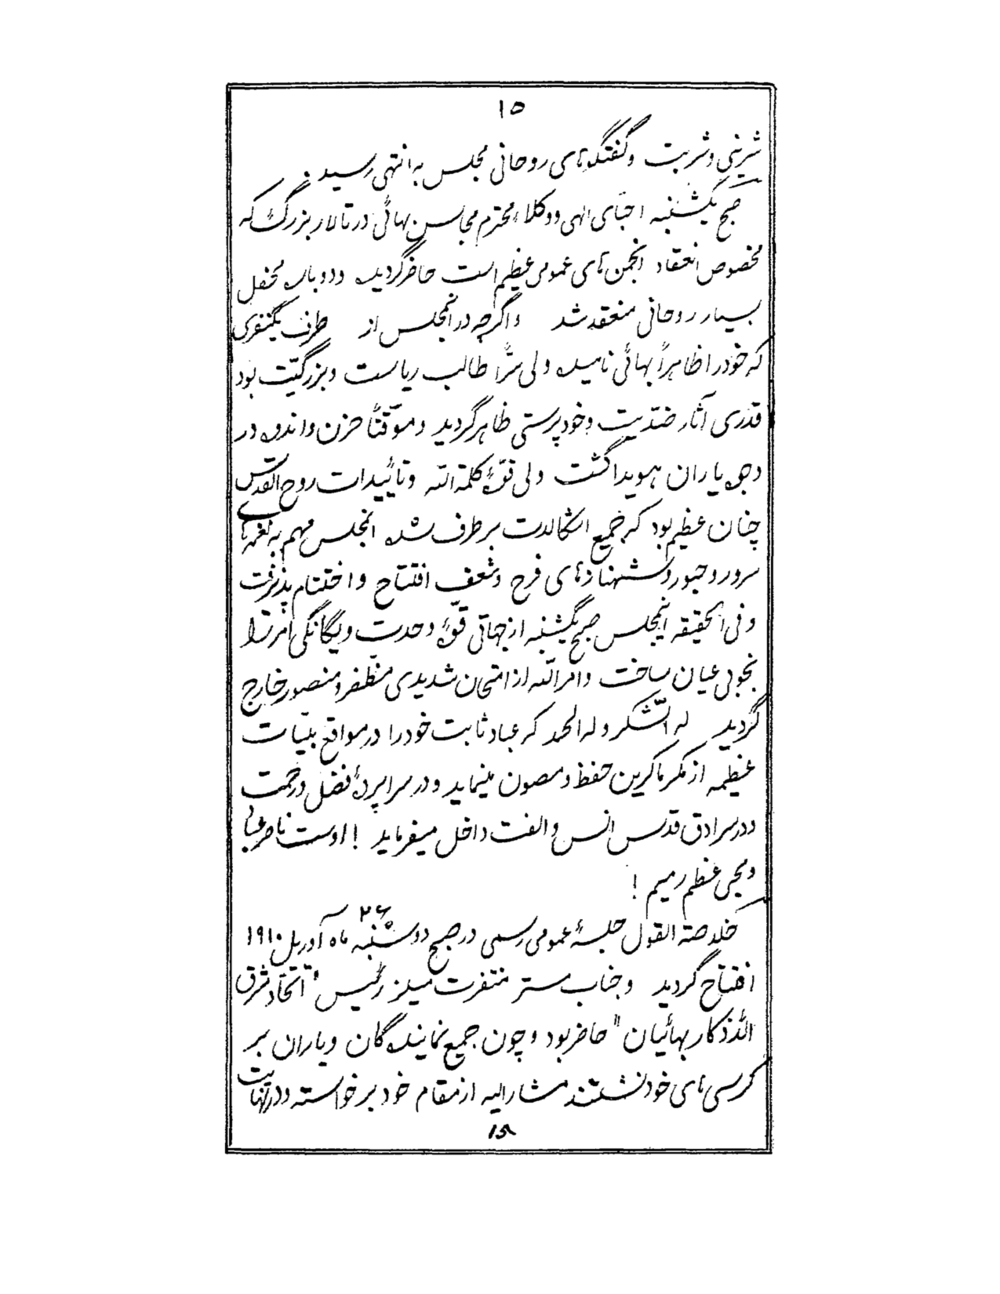 ۱۵
شیرینی و شربت و گفتگوهای روحانی مجلس به انتهی رسید.
صبح یکشنبه احبّای الهی و وکلاء محترم مجالس بهائی در تالار بزرگ که
مخصوص انعقاد انجمن های عمومی عظیم است حاضر گردیده و دو باره محفل
بسیار روحانی منعقد شد و اگرچه در آنمجلس از طرف یکنفری
که خود را ظاهراً بهائی نامیده ولی سرّاً طالب ریاست و بزرگیّت بود
قدری آثار ضدّیت و خودپرستی ظاهر گردید و موقّتاً حزن و اندوه در
وجوه یاران هویدا گشت ولی قوّهٔ کلمة الله و تأییدات روح القدس
چنان عظیم بود که جمیع اشکالات برطرف شده انمجلس مهم به نغمه های
سرور و حبور و شهنازهای فرح و شعف افتتاح و اختتام پذیرفت
و فی الحقیقه اینمجلس صبح یکشنبه از جهاتی قوّهٔ وحدت و یگانگی امر را
بخوبی عیان ساخت و امرالله از امتحان شدیدی مظفّر و منصور خارج
گردید له الشّکر و له الحمد که عباد ثابت خود را در مواقع بلیّات
عظیمه از مکر ماکرین حفظ و مصون مینماید و در سراپردهٔ فضل و رحمت
و در سرادق قدس انس و الفت داخل میفرماید ! اوست ناصر
و محیی عظم رمیم !
خلاصة القول جلسهٔ عمومی رسمی در صبح دوشنبه ۲۶ ماه آوریل ۱۹۱۰
افتتاح گردید و جناب مستر منتفرت میلز رئیس "اتّحاد شرق
الاذکار بهائیان" حاضر بود و چون جمیع نمایندگان و یاران بر
کرسی های خود نشستند مشارالیه از مقام خود برخواسته و در نهایت
۱۵